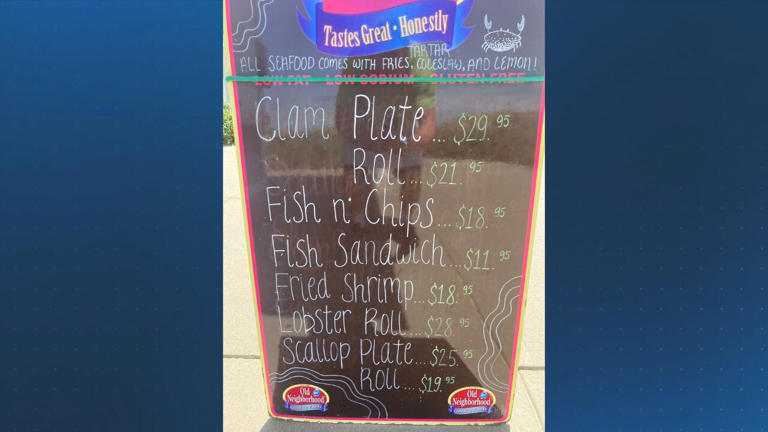 Tastes Great • Honestly
TARTAR
ALL SEAFOOD COMES WITH FRIES, COLESLAW, AND LEMON!
LOW FAT LOW SODIUM GLUTEN FREE
Clam Plate... $29.95
Roll... $21.95
Fish n' Chips... $18.95
Fish Sandwich... $11.95
Fried Shrimp... $18.95
Lobster Roll... $28.95
Scallop Plate... $25.95
Roll... $19.95
Old Neighborhood
Old Neighborhood